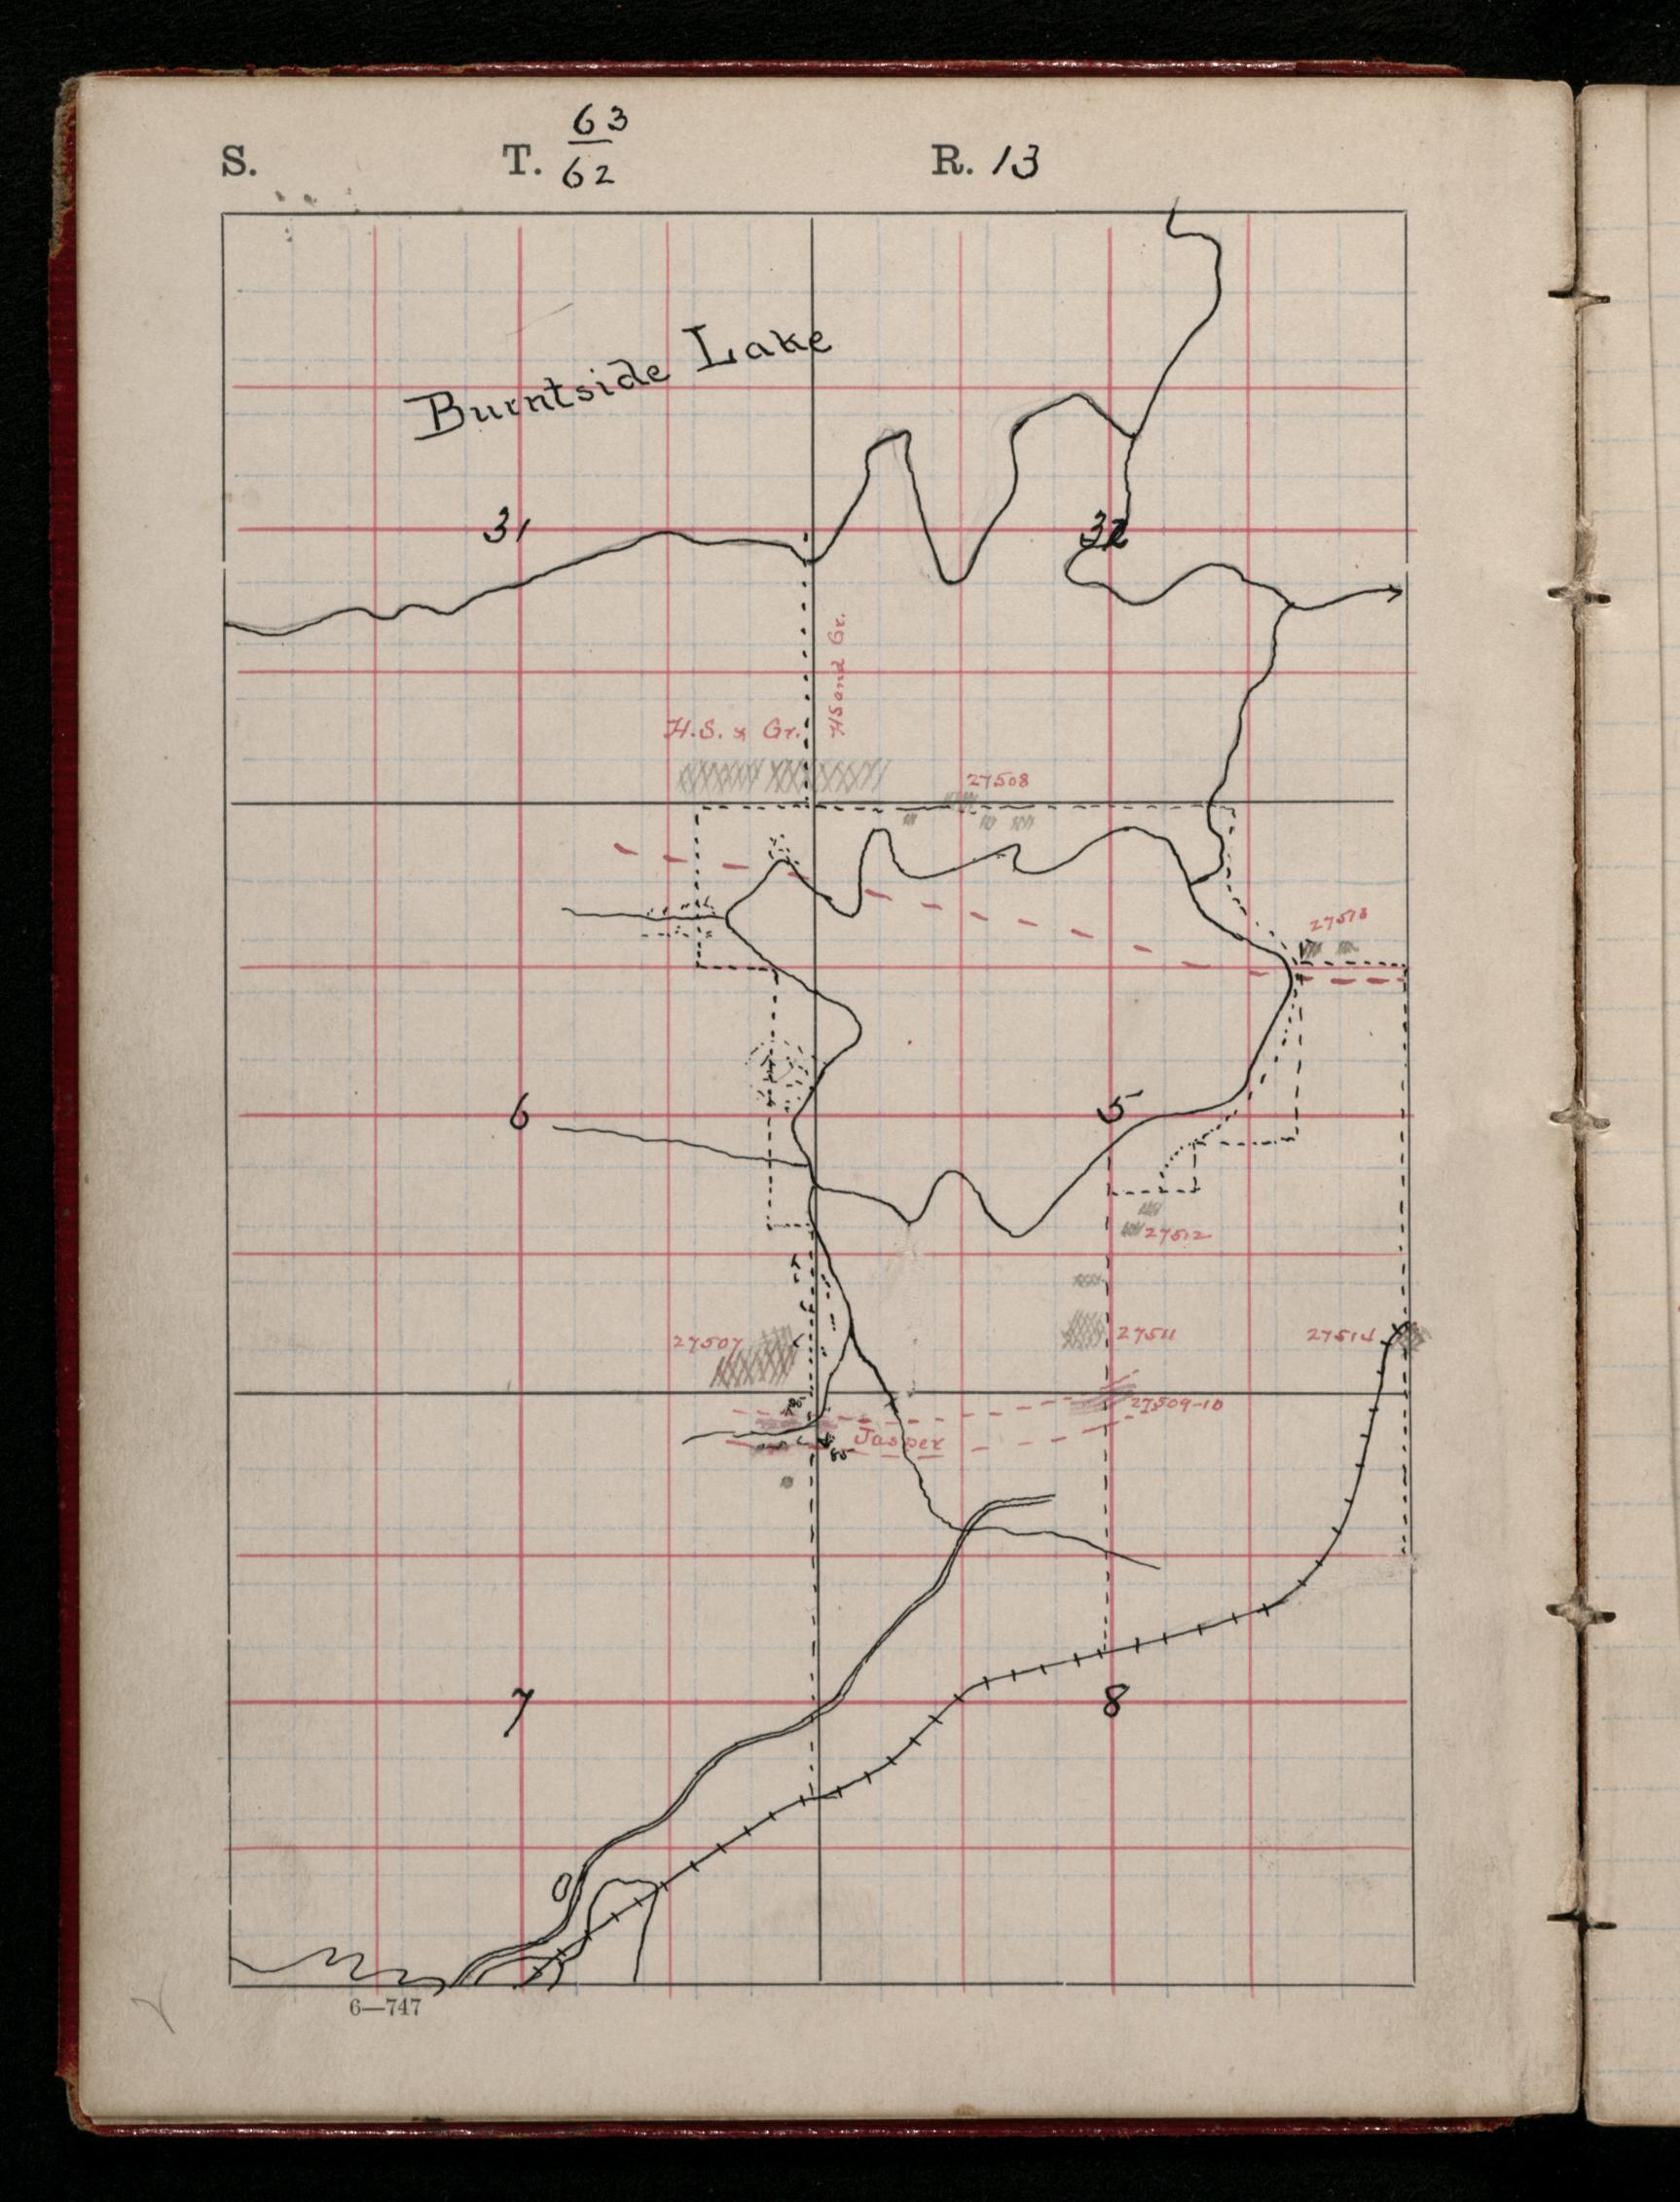 63
S. T. 62 R. 13
Burntside Lake
31 32
HS and Gr.
H.S. & Gr.
27508
27513
6 5
27512
27507 27511 27514
27509-10
Jasper
7 8
6—747